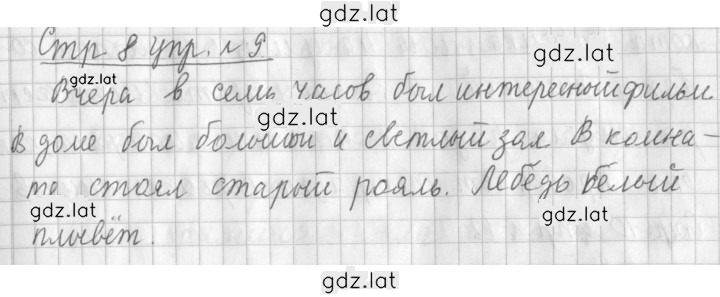 gdz.lat
Стр 8 упр. № 9
gdz.lat
gdz.lat
gdz.lat
Вчера в семь часов был интересный фильм
gdz.lat
В доме был большой и светлый зал В комна-
та стоял старый рояль. Лебедь белый
gdz.lat
gdz.lat
плывёт.
gdz.lat